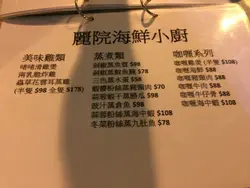 麗院海鮮小廚
美味雞類
啫啫滑雞煲
南乳脆炸雞
蟲草花雲耳蒸雞
(半隻 $98 全隻 $178)
蒸煮類
剁椒蒸魚頭 $98
剁椒蒸鮫魚腩 $78
三色蒸水蛋 $58
蝦醬粉絲蒸豬頸肉 $70
蒜蓉蝦干蒸勝瓜 $98
豉汁蒸倉魚 $98
蒜蓉粉絲蒸海中蝦 $108
冬菜粉絲蒸九肚魚 $78
咖喱系列
咖喱雞煲 (半隻 $108)
咖喱海鮮 $88
咖喱豬頸肉 $88
咖喱牛肉 $88
咖喱牛仔骨 $98
咖喱海中蝦 $108